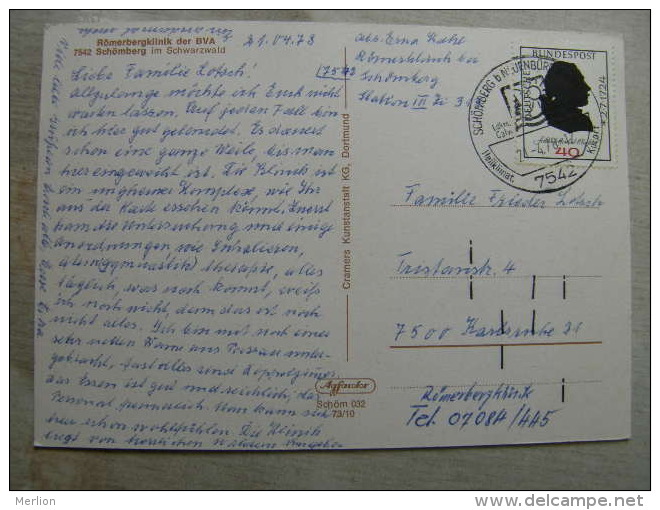 Römerbergklinik der BVA
7542 Schömberg im Schwarzwald
21.04.78
Liebe Familie Lotsch!
allzulange möchte ich Euch nicht
warten lassen. Auf jeden Fall bin
ich hier gut gelandet. Es dauert
schon eine ganze Weile, bis man
hier eingeweiht ist. Die Klinik ist
ein ungeheurer Komplex, wie Ihr
aus der Karte ersehen könnt. Zuerst
kam die Untersuchung und einige
Anordnungen wie Inhalieren,
Atemgymnastik, Therapie, alles
täglich, was noch kommt, weiß
ich noch nicht, denn das ist noch
nicht alles. Ich bin mit noch einer
sehr netten Dame aus Passau unter-
gebracht, fast alles sind Doppelzimmer.
das Essen ist gut und reichlich, das
Personal freundlich. Man kann sich
hier schon wohlfühlen. Die Klinik
liegt von herrlichen Wäldern umgeben
Cramers Kunstanstalt KG, Dortmund
Schöm 032
73/10
abs. Erna
Römerbergklinik der
7542 Schömberg
Station III Zi
DEUTSCHE BUNDESPOST
40
SCHÖMBERG b NEUENBÜRG
Heilklimat.
7542
Familie Frieder Lotsch
Tristanstr. 4
7500 Karlsruhe 21
Römerbergklinik
Tel. 07084/445
Merlion www.delcampe.net